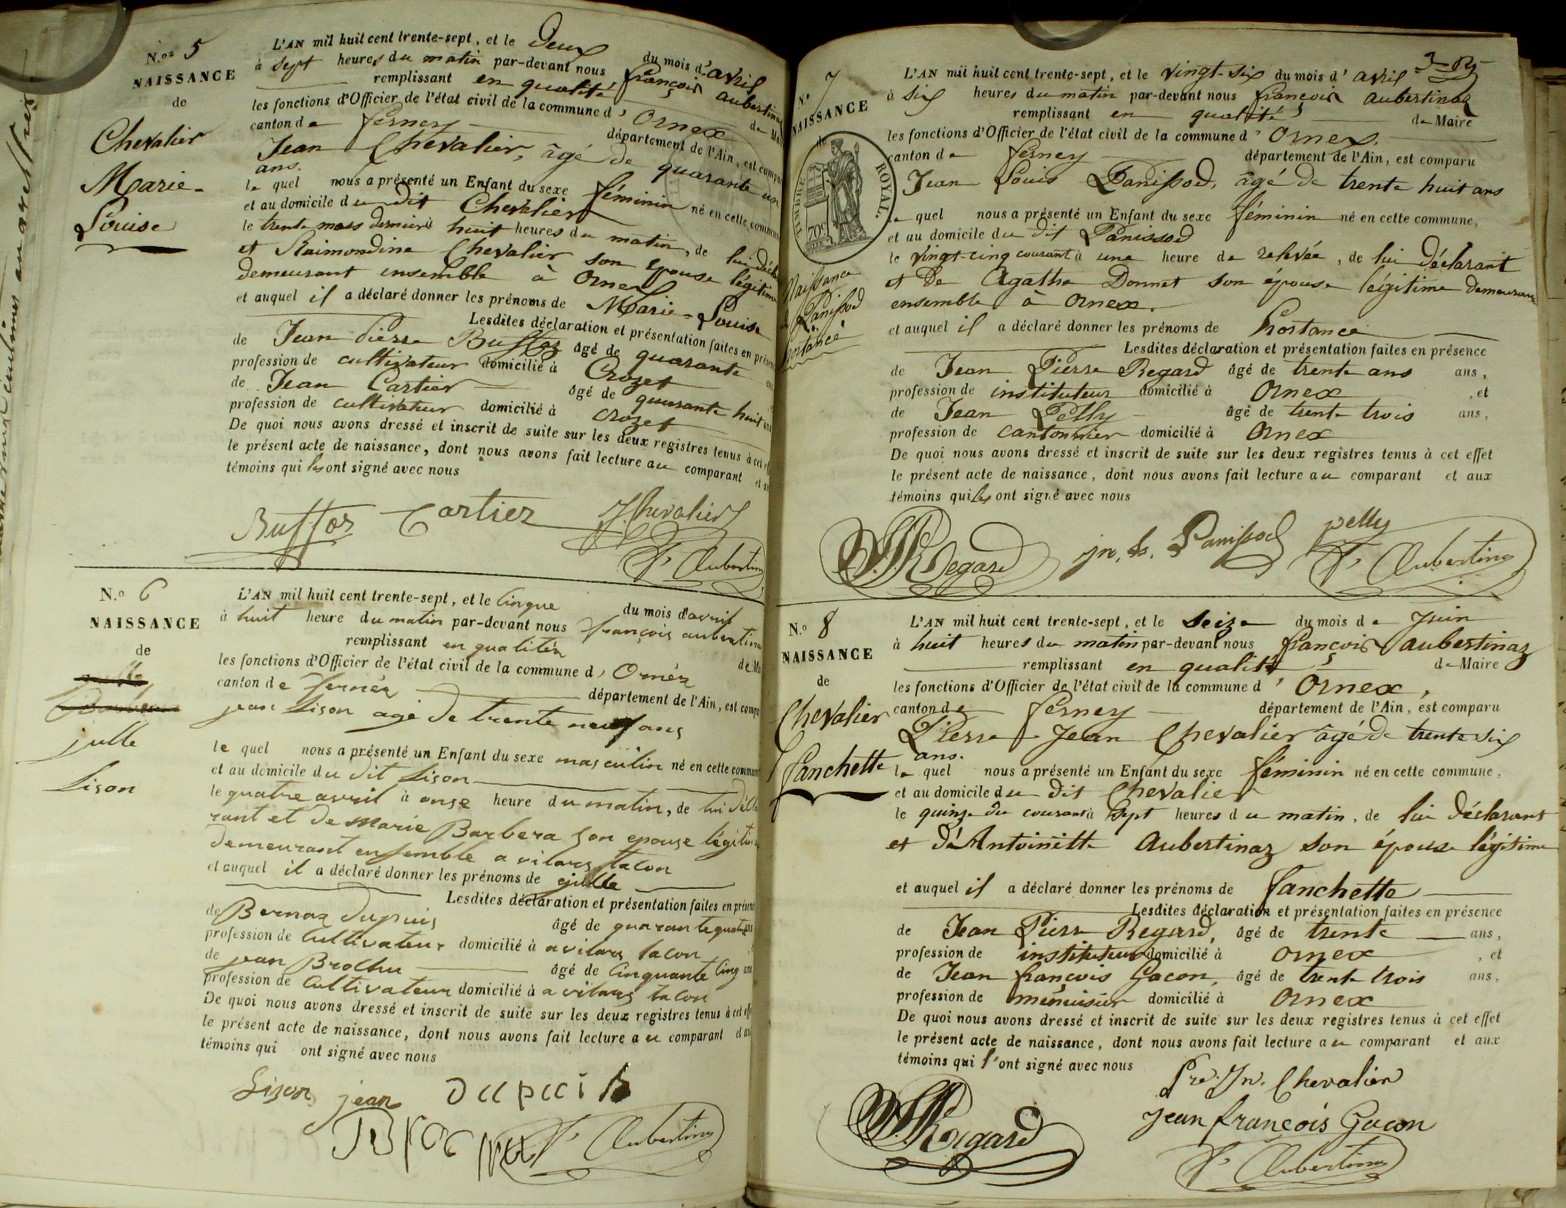 N.o 5
NAISSANCE
de
Chevalier
Marie-
Louise
L'AN mil huit cent trente-sept, et le Deux du mois d'avril
à sept heures du matin par-devant nous françois aubertinaz
remplissant en qualité de Maire
les fonctions d'Officier de l'état civil de la commune d'Ornex
canton de ferney département de l'Ain, est comparu
Jean Chevalier, âgé de quarante un
ans.
le quel nous a présenté un Enfant du sexe féminin né en cette commune
et au domicile du dit Chevalier
le trente mars dernier à huit heures du matin, de lui décla
et Raimondine Chevalier son épouse légitime
demeurant ensemble à Ornex
et auquel il a déclaré donner les prénoms de Marie-Louise
Lesdites déclaration et présentation faites en présence
de Jean Pierre Buffoz âgé de quarante
profession de cultivateur domicilié à Crozet
de Jean Cartier âgé de quarante huit ans
profession de cultivateur domicilié à crozet
De quoi nous avons dressé et inscrit de suite sur les deux registres tenus à cet effet
le présent acte de naissance, dont nous avons fait lecture au comparant et aux
témoins qui les ont signé avec nous
Buffoz Cartier J. Chevalier
F. Aubertinaz
N.o 6
NAISSANCE
de
julle
Lison
L'AN mil huit cent trente-sept, et le Cinque du mois d'avril
à huit heure du matin par-devant nous françois aubertinaz
remplissant en qualitéz de Maire
les fonctions d'Officier de l'état civil de la commune d'Ornéx
canton de fernéx département de l'Ain, est comparu
jean Lison agé de trente neuf ans
le quel nous a présenté un Enfant du sexe masculin né en cette commune
et au domicile du dit Lison
le quatre avril à onze heure du matin, de lui décla
rant et de Marie Barbera son epouse légitime
demeurant ensemble a vilars tacon
et auquel il a déclaré donner les prénoms de julle
Lesdites déclaration et présentation faites en présence
de Bernaz Dupuis âgé de quarante quatre ans
profession de Cultivateur domicilié à a vilars tacon
de jean Brochu âgé de Cinquante Cinq ans
profession de Cultivateur domicilié à a vilars tacon
De quoi nous avons dressé et inscrit de suite sur les deux registres tenus à cet effet
le présent acte de naissance, dont nous avons fait lecture au comparant et aux
témoins qui ont signé avec nous
Lison jean Dupuis
F. Aubertinaz
N.o 7
NAISSANCE
de
TIMBRE ROYAL.
70c
Naissance
Panissod
hortance
L'AN mil huit cent trente-sept, et le vingt-six du mois d'avril
à six heures du matin par-devant nous françois aubertinaz
remplissant en qualité de Maire
les fonctions d'Officier de l'état civil de la commune d'Ornex.
canton de ferney département de l'Ain, est comparu
Jean Louis Panissod, âgé de trente huit ans
le quel nous a présenté un Enfant du sexe féminin né en cette commune,
et au domicile du dit Panissod
le vingt-cinq courant à une heure de relevée, de lui déclarant
et de Agathe Donnet son épouse légitime demeurant
ensemble à Ornex.
et auquel il a déclaré donner les prénoms de hortance
Lesdites déclaration et présentation faites en présence
de Jean Pierre Regard âgé de trente ans ans,
profession de instituteur domicilié à Ornex, et
de Jean Pelly âgé de trente trois ans,
profession de cantonnier domicilié à Ornex
De quoi nous avons dressé et inscrit de suite sur les deux registres tenus à cet effet
le présent acte de naissance, dont nous avons fait lecture au comparant et aux
témoins qui les ont signé avec nous
J.P. Regard jn. ls. Panissod pelly
F. Aubertinaz
N.o 8
NAISSANCE
de
Chevalier
fanchette
L'AN mil huit cent trente-sept, et le seize du mois de Juin
à huit heures du matin par-devant nous françois aubertinaz
remplissant en qualité de Maire
les fonctions d'Officier de l'état civil de la commune d'Ornex,
canton de ferney département de l'Ain, est comparu
Pierre Jean Chevalier âgé de trente six
ans.
le quel nous a présenté un Enfant du sexe féminin né en cette commune,
et au domicile du dit Chevalier
le quinze du courant à sept heures du matin, de lui déclarant
et d'Antoinette Aubertinaz son épouse légitime
et auquel il a déclaré donner les prénoms de fanchette
Lesdites déclaration et présentation faites en présence
de Jean Pierre Regard, âgé de trente ans,
profession de instituteur domicilié à Ornex, et
de Jean françois Gacon, âgé de trente trois ans,
profession de menuisier domicilié à Ornex
De quoi nous avons dressé et inscrit de suite sur les deux registres tenus à cet effet
le présent acte de naissance, dont nous avons fait lecture au comparant et aux
témoins qui l'ont signé avec nous
Pre. Jn. Chevalier
J.P. Regard jean françois Gacon
F. Aubertinaz